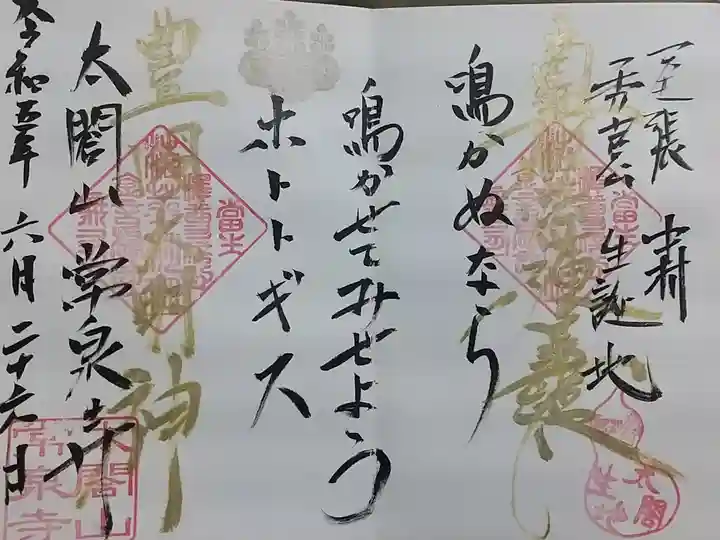 尾張 中村
秀吉公 生誕地
南無妙法蓮華経
鳴かぬなら
鳴かせてみせよう
ホトトギス
豊国大明神
太閤山 常泉寺
令和五年 六月二十六日
太閤山
常泉寺